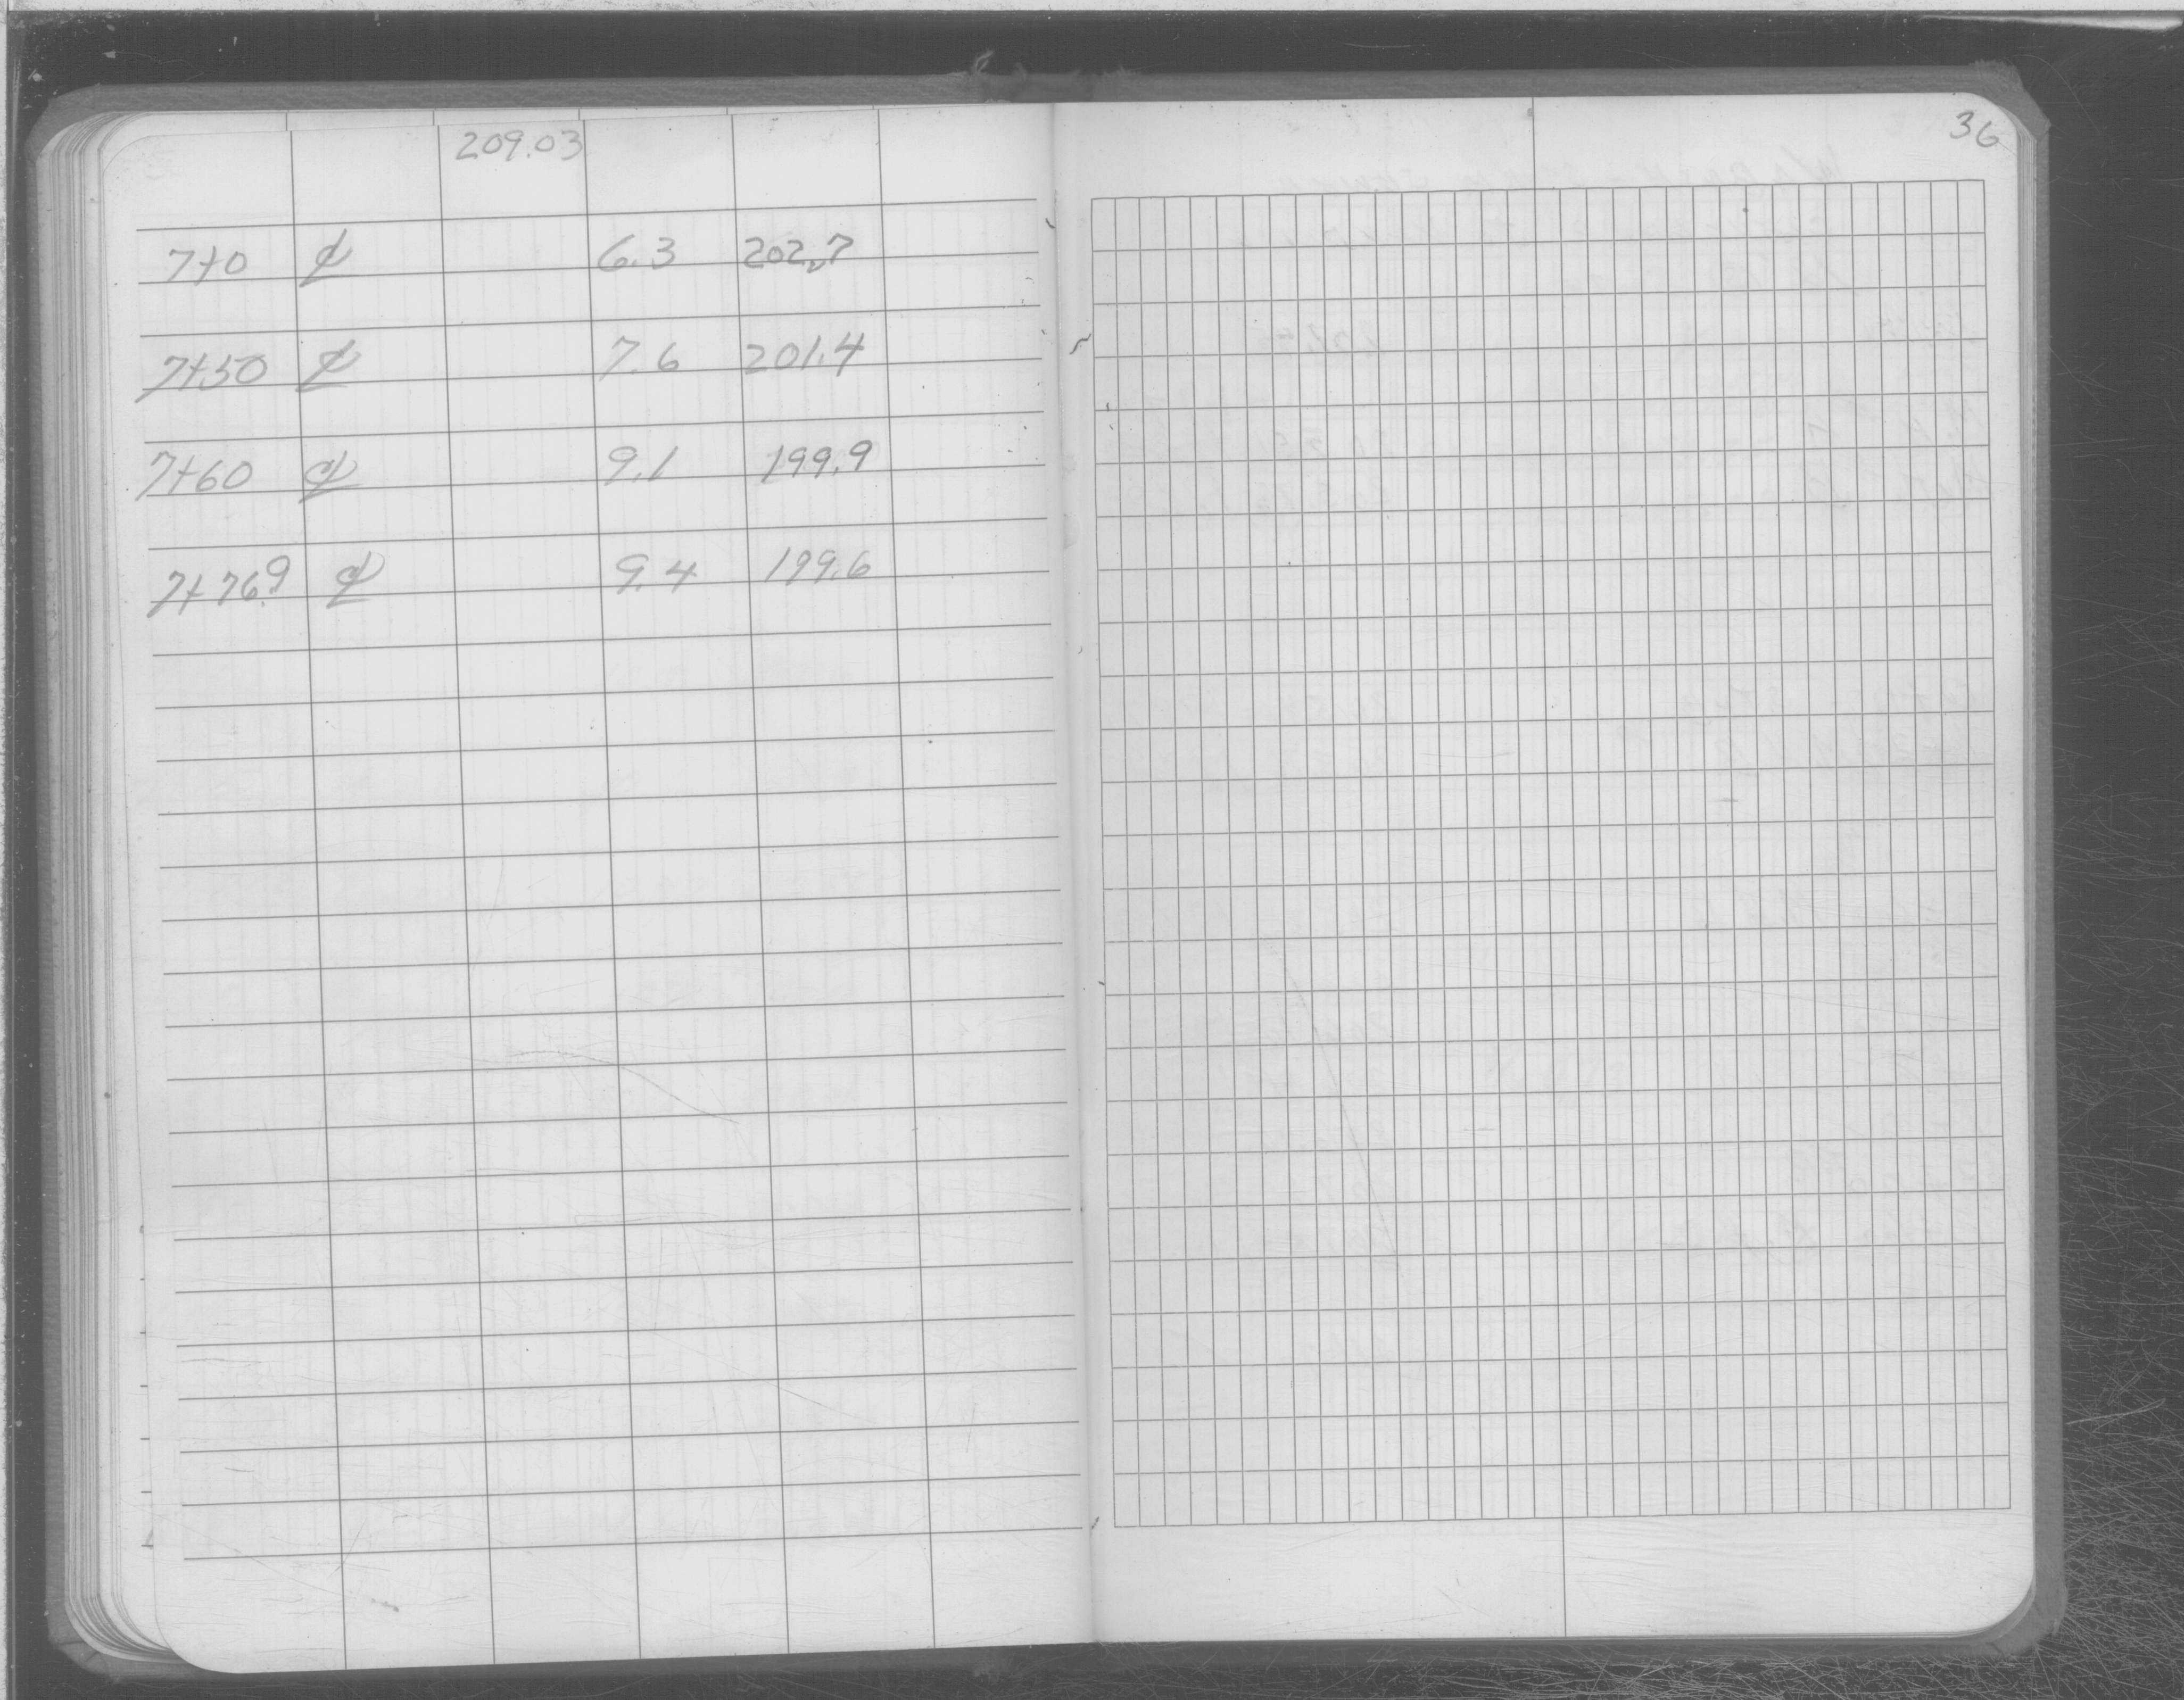 209.03
36
7+0 ℄ 6.3 202.7
7+50 ℄ 7.6 201.4
7+60 ℄ 9.1 199.9
7+76.9 ℄ 9.4 199.6